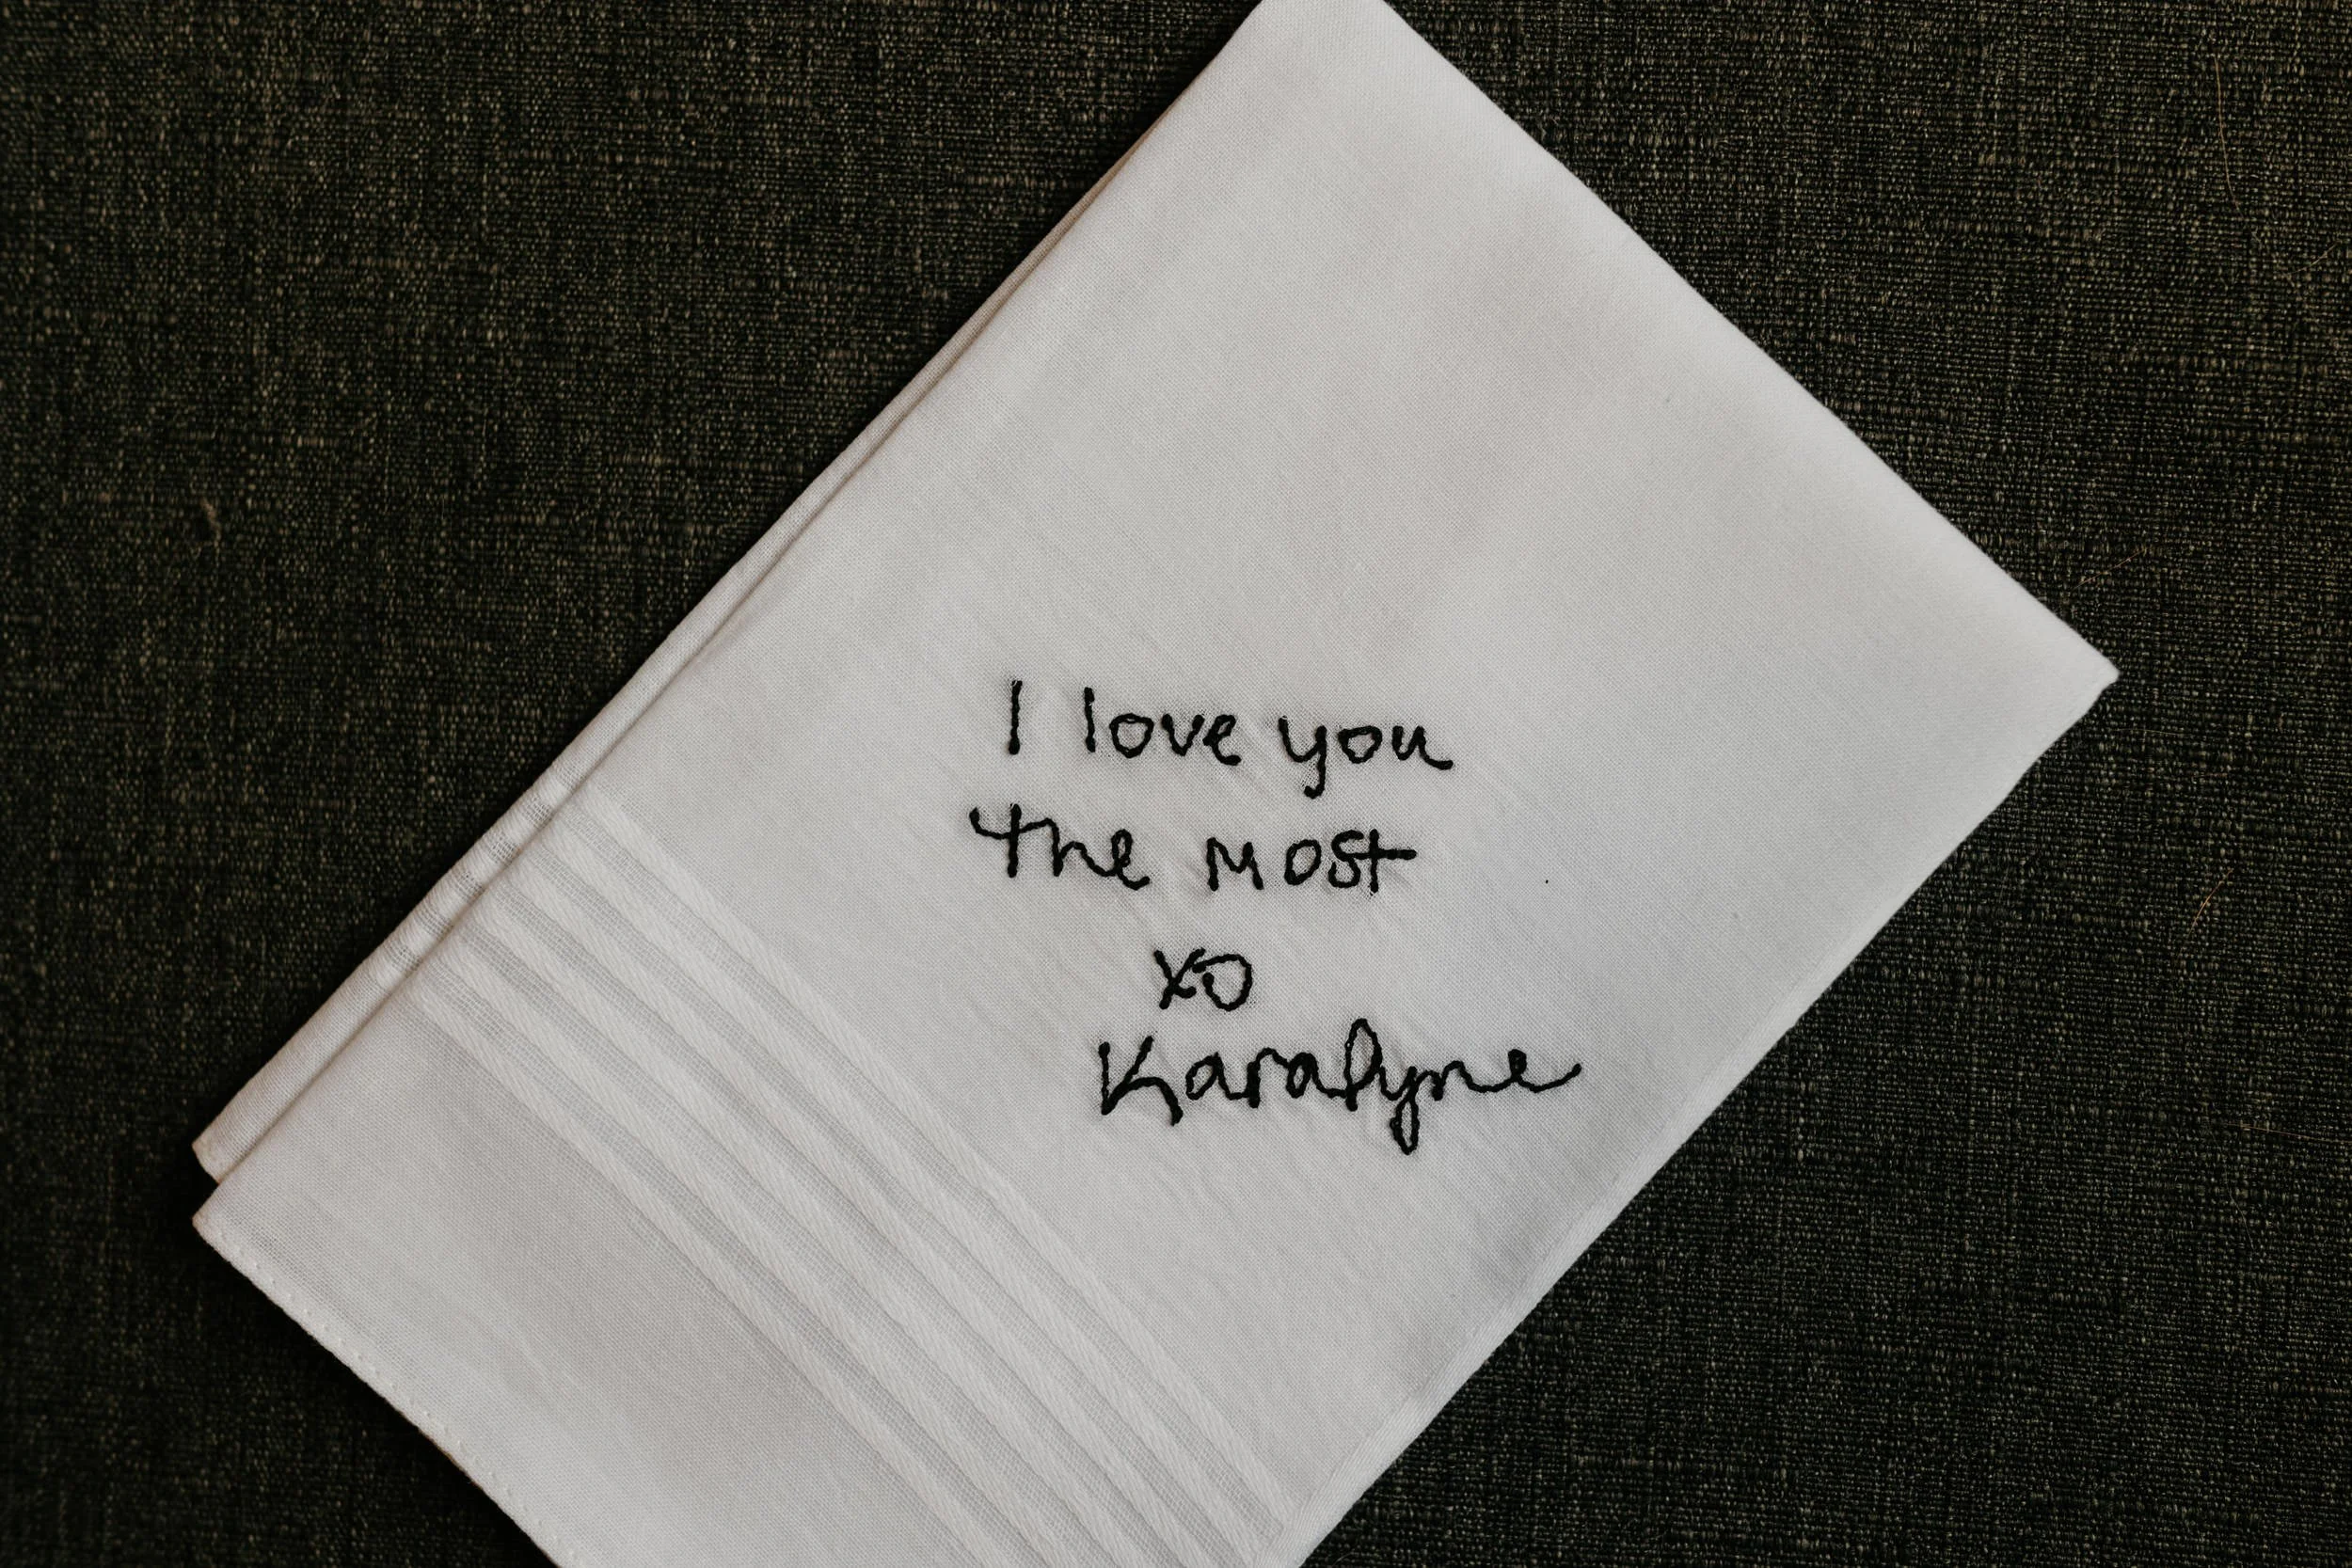 I love you
the most
xo
Karalyne